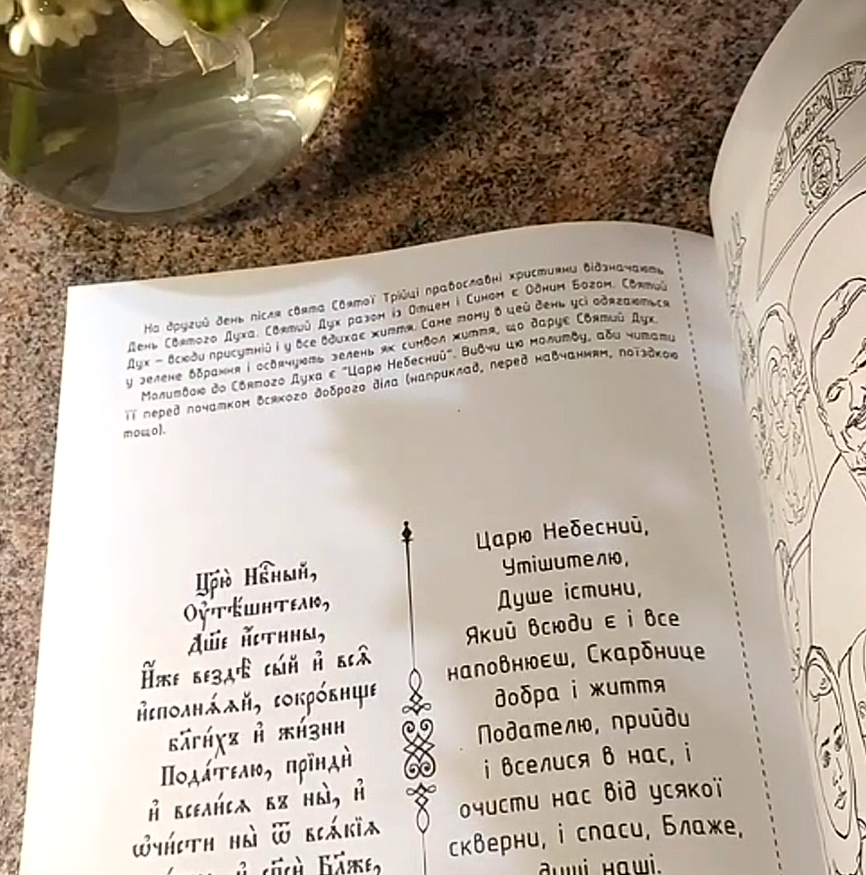 На другий день після свята Святої Трійці православні християни відзначають
День Святого Духа. Святий Дух разом із Отцем і Сином є Одним Богом. Святий
Дух – всюди присутній і у все вдихає життя. Саме тому в цей день усі одягаються
у зелене вбрання і освячують зелень як символ життя, що дарує Святий Дух.
Молитвою до Святого Духа є "Царю Небесний". Вивчи цю молитву, аби читати
її перед початком всякого доброго діла (наприклад, перед навчанням, поїздкою
тощо).
Цр҃ю̀ Нбⷭ҇ный,
Оу҆тѣ́шителю,
Дш҃е и҆́стины,
И҆́же вездѣ̀ сы́й и҆ всѧ̑
и҆сполнѧ́ѧй, сокро́вище
бл҃ги́хъ и҆ жи́зни
Пода́телю, прїидѝ
и҆ всели́сѧ въ ны̀, и҆
ѡ҆чи́сти ны̀ ѿ всѧ́кїѧ
и҆ сп҃сѝ Бл҃же,
Царю Небесний,
Утішителю,
Душе істини,
Який всюди є і все
наповнюєш, Скарбнице
добра і життя
Подателю, прийди
і вселися в нас, і
очисти нас від усякої
скверни, і спаси, Блаже,
душі наші.